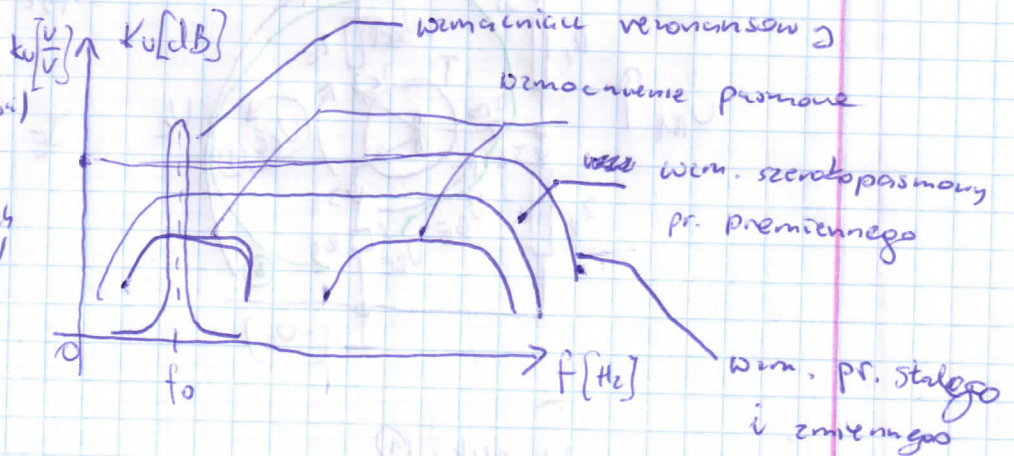 ku[V/V] Ku[dB]
wzmacniacz rezonansowy
wzmocnienie pasmowe
wzm. szerokopasmowy
pr. przemiennego
0
f0
f[Hz]
wzm. pr. stałego
i zmiennego